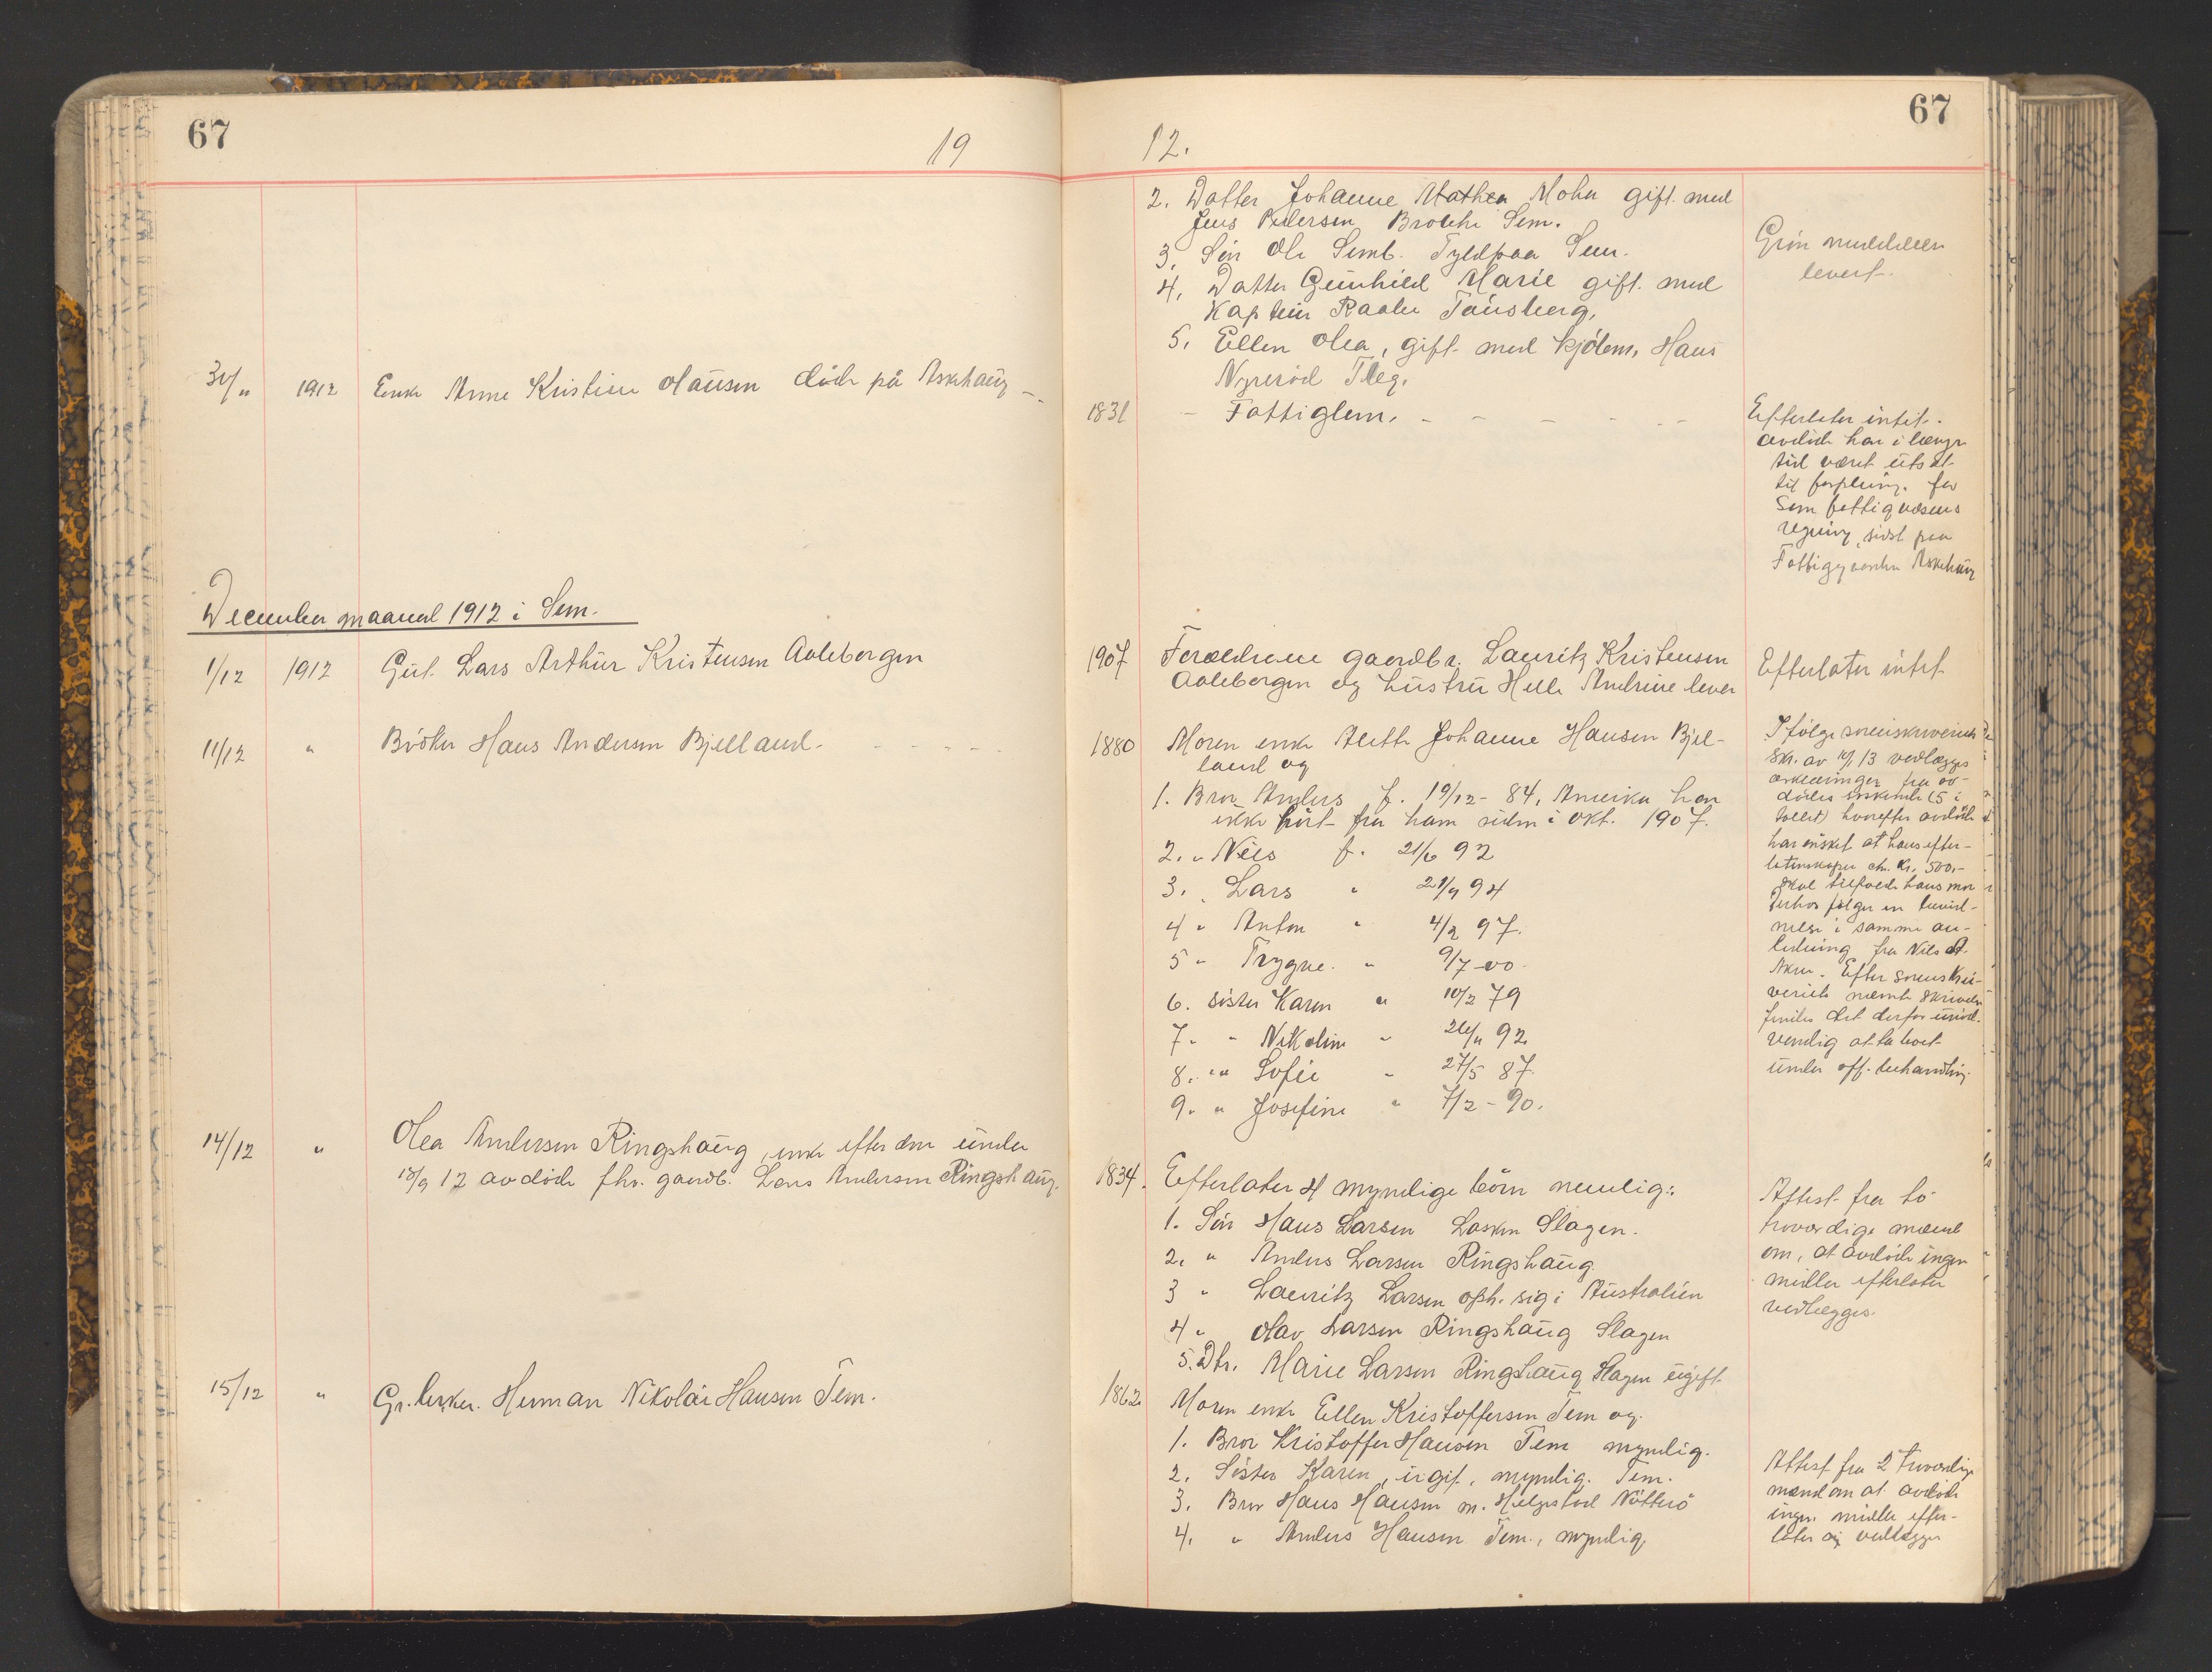 67
19
12.
67
2. Datter Johanne Mathea Mohn gift med
Jens Pedersen Sem.
3. Sön Ole Semb. Sem.
4. Datter Gunhild Marie gift med
Kaptein Raabe Tönsberg.
5. Ellen Olea, gift med kjölem. Hans
Nyreröd Tbeg.
levert.
1912 Enke Anne Kristine Olausen död på Askehaug
1831 - Fattiglem. - - - - -
Efterlater intet.
avdöde har i længre
tid været utsat
til forpleining for
Sem fattigvæsens
regning, sidst paa
Fattiggaarden Askehaug
December maaned 1912 i Sem.
1/12 1912 Gut Lars Arthur Kristensen Aolebergen
1907 Foræeldrene gaardbr. Lauritz Kristensen
Aolebergen og hustru Helle Andrine lever
Efterlater intet
11/12 " Bröker Hans Andersen Bjelland. - - - - -
1880 Moren enke Aleth Johanne Hansen Bjel-
land og
1. Bror Anders f. 19/12 - 84, Amerika har
ikke hört fra ham siden i okt. 1907.
2. " Nils f. 21/6 92
3. " Lars " 21/9 94
4 " Anton " 4/2 97.
5 " Trygve. " 9/7 - 00.
6. söster Karen " 10/2 79
7. " Nikoline " 92
8. " Sofie " 27/5 87.
9. " Josefine " 7/2 - 90.
Ifölge sorenskriverens
skr. av 10/1 13 vedlægges
erklæringer fra av-
dödes söskende (5 i
tallet) hvorefter avdöde
har önsket at hans efter-
latenskaper ca. Kr. 500,-
skal tilfalde hans mor
derhos fölger en bevid-
nelse i samme an-
ledning fra Nils A.
Aker. Efter sorenskri-
verens nævnte skrivelse
findes det derfor unöd-
vendig at ta boet
under off. behandling.
14/12 " Olea Andersen Ringshaug, enke efter den under
18/9 12 avdöde fhv. gaardb. Lars Andersen Ringshaug.
1834. Efterlater 4 myndige börn nemlig:
1. Sön Hans Larsen Slagen.
2. " Anders Larsen Ringshaug
3 " Lauritz Larsen oph. sig i Australien
4 " Olav Larsen Ringshaug Slagen
5. Dtr. Marie Larsen Ringshaug Slagen ugift
Attest fra to
troværdige mænd
om, at avdöde ingen
midler efterlater
vedlægges.
15/12 " Herman Nikolai Hansen Tem.
1862 Moren enke Ellen Kristoffersen Tem og
1. Bror Kristoffer Hansen Tem myndig.
2. Söster Karen, ugift, myndig. Tem.
3. Bror Hans Hansen m. Nötterö
4. " Anders Hansen Tem., myndig
Attest fra 2 troværdige
mænd om at avdöde
ingen midler efter-
later sig vedlægges